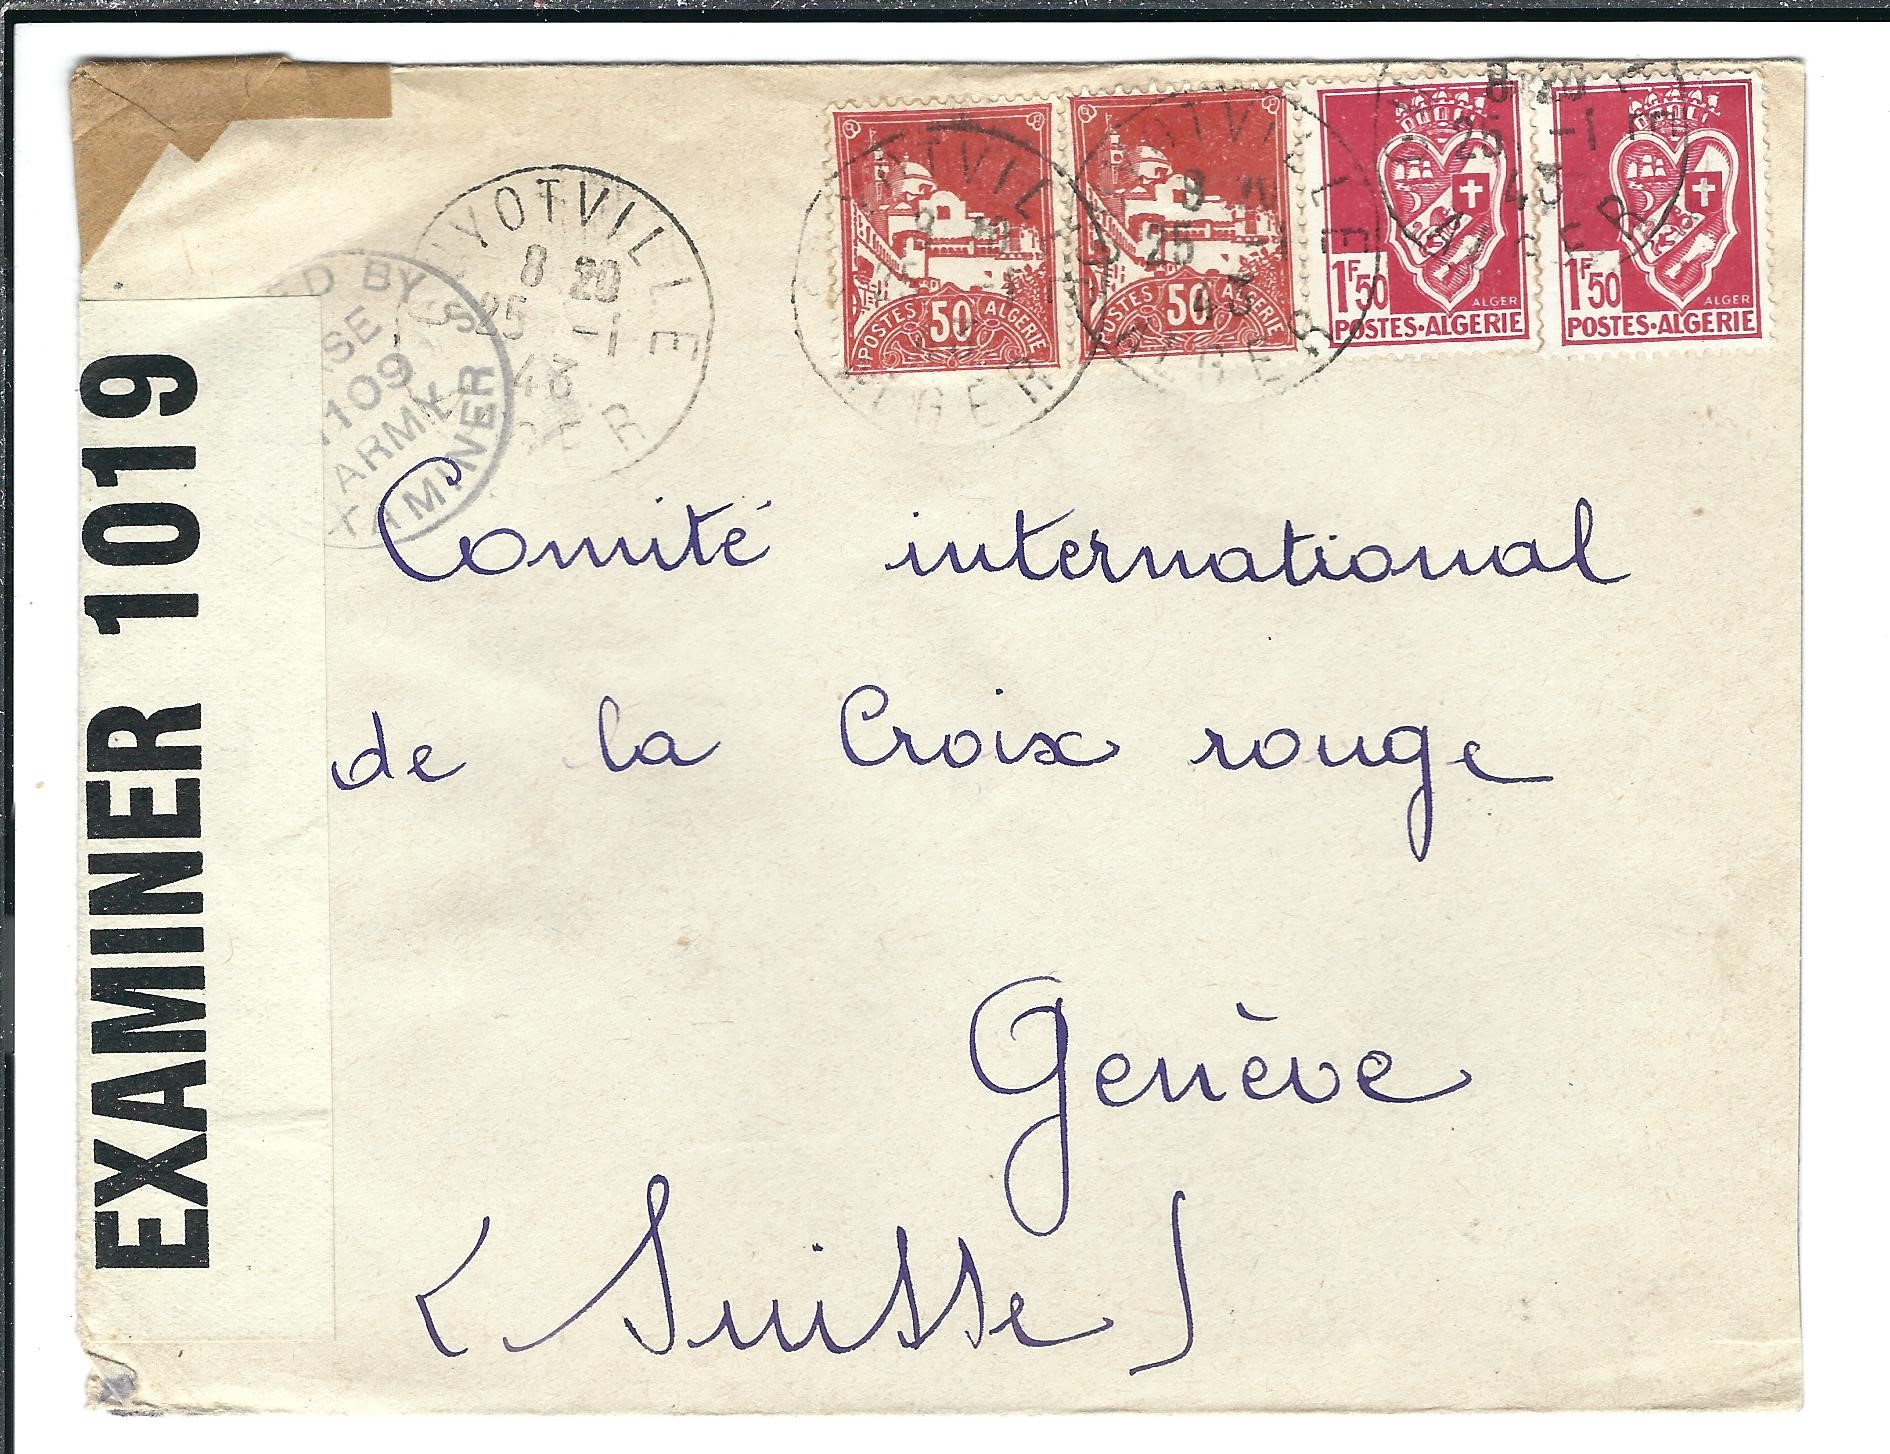 EXAMINER 1019
ED BY
1109
ARMY
AMINER
YOTVILLE
8 20
25 -1
43
ER
50
POSTES ALGERIE
50
POSTES ALGERIE
25 -1
43
8 20
25 -1
43
1F50
ALGER
POSTES-ALGERIE
1F50
ALGER
POSTES-ALGERIE
Comité international
de la Croix rouge
Genève
(Suisse)